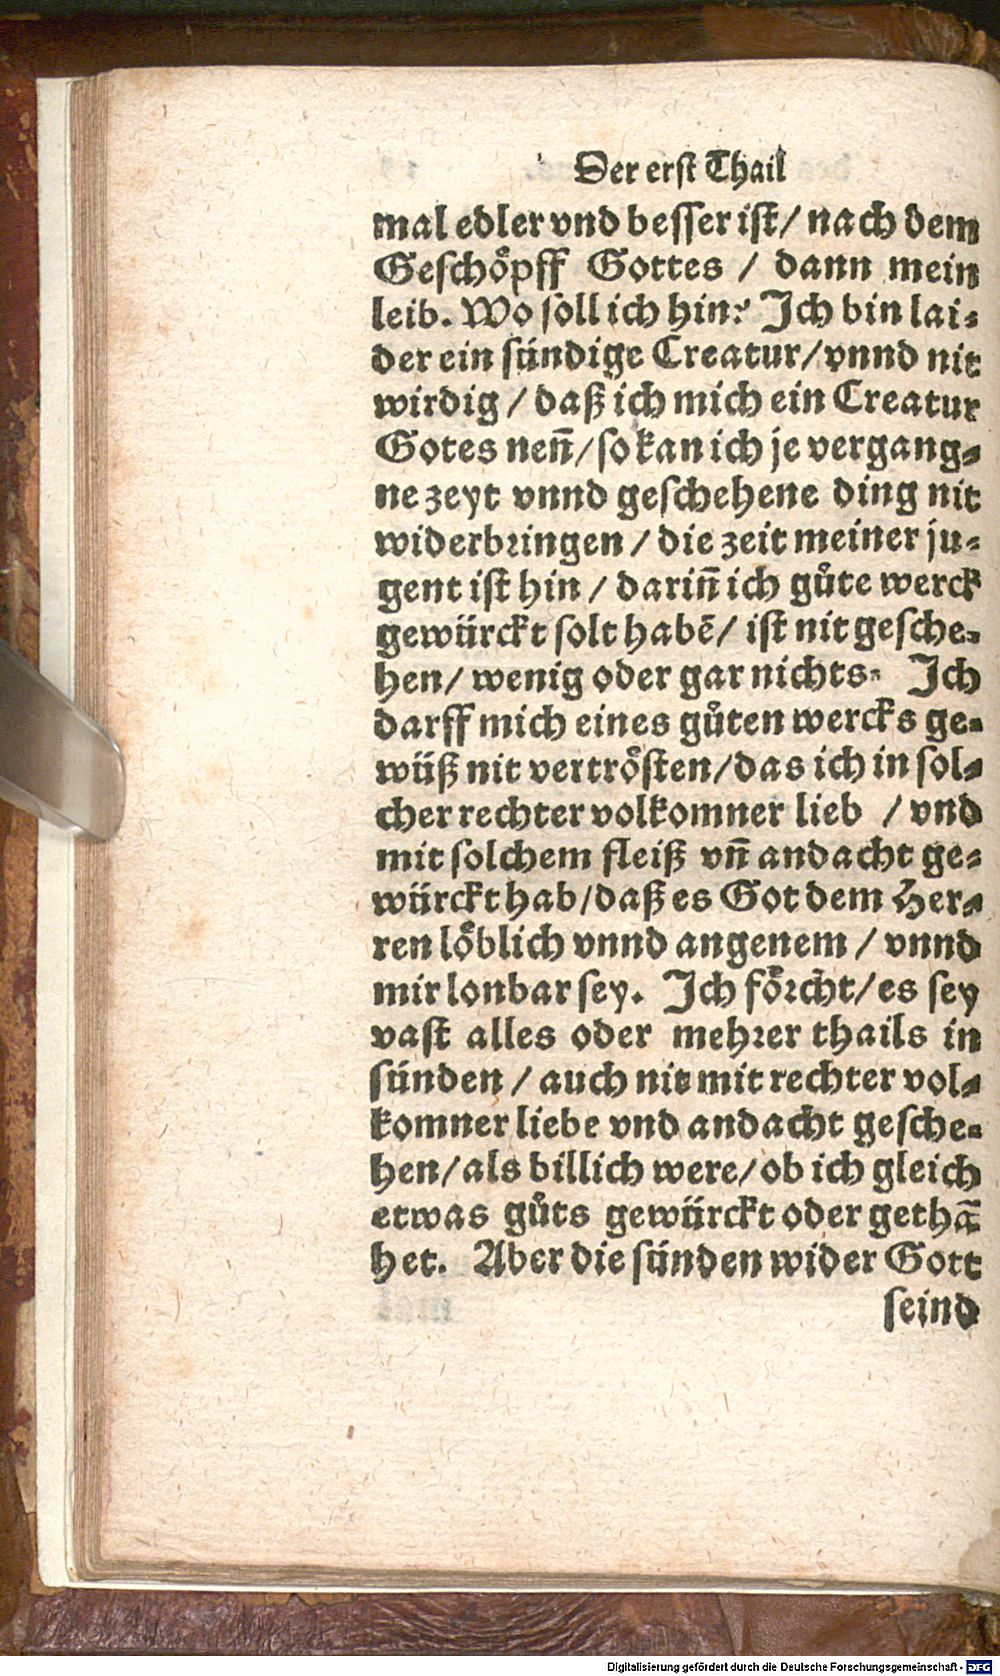 Der erst Thail
mal edler vnd besser ist/ nach dem
Geschöpff Gottes / dann mein
leib. Wo soll ich hin? Ich bin lai-
der ein sündige Creatur/ vnnd nit
wirdig / daß ich mich ein Creatur
Gotes nen̄/ so kan ich je vergang-
ne zeyt vnnd geschehene ding nit
widerbringen / die zeit meiner ju-
gent ist hin / darin̄ ich gůte werck
gewürckt solt habē/ ist nit gesche-
hen/ wenig oder gar nichts. Ich
darff mich eines gůten wercks ge-
wüß nit vertrösten/ das ich in sol-
cher rechter volkomner lieb / vnd
mit solchem fleiß vn̄ andacht ge-
würckt hab/ daß es Got dem Her-
ren löblich vnnd angenem / vnnd
mir lonbar sey. Ich förcht/ es sey
vast alles oder mehrer thails in
sünden / auch nit mit rechter vol-
komner liebe vnd andacht gesche-
hen/ als billich were/ ob ich gleich
etwas gůts gewürckt oder gethā
het. Aber die sünden wider Gott
seind
Digitalisierung gefördert durch die Deutsche Forschungsgemeinschaft - DFG